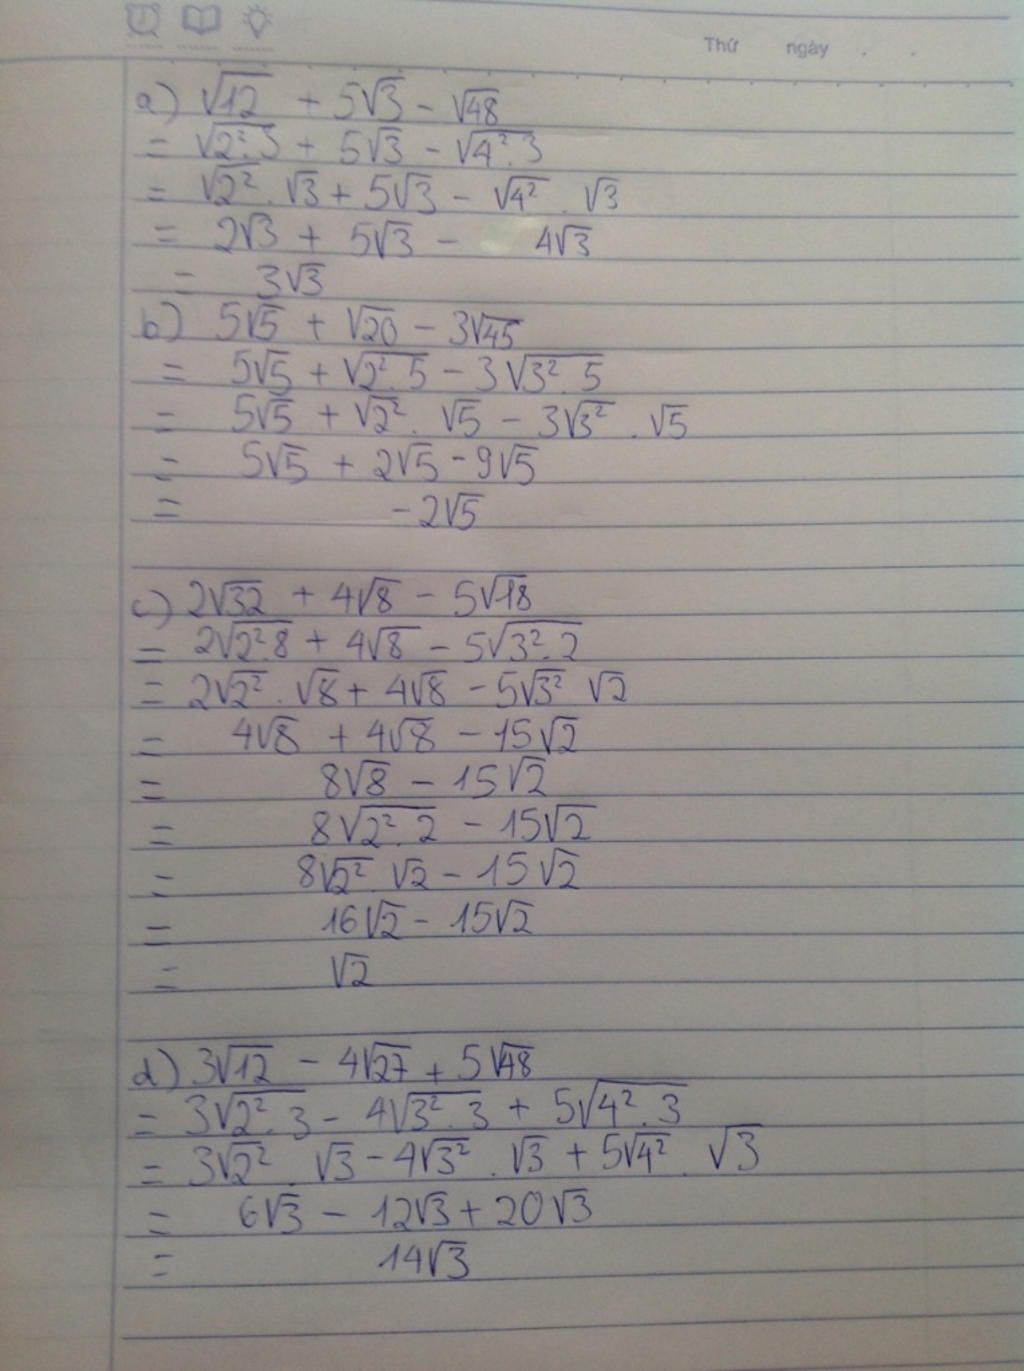 Thứ ngày . .
a) √12 + 5√3 - √48
= √2².3 + 5√3 - √4².3
= √2² . √3 + 5√3 - √4² . √3
= 2√3 + 5√3 - 4√3
= 3√3
b) 5√5 + √20 - 3√45
= 5√5 + √2².5 - 3√3².5
= 5√5 + √2² . √5 - 3√3² . √5
= 5√5 + 2√5 - 9√5
= -2√5
c) 2√32 + 4√8 - 5√18
= 2√2².8 + 4√8 - 5√3².2
= 2√2² . √8 + 4√8 - 5√3² √2
= 4√8 + 4√8 - 15√2
= 8√8 - 15√2
= 8√2².2 - 15√2
= 8√2² . √2 - 15√2
= 16√2 - 15√2
= √2
d) 3√12 - 4√27 + 5√48
= 3√2².3 - 4√3².3 + 5√4².3
= 3√2² . √3 - 4√3² . √3 + 5√4² . √3
= 6√3 - 12√3 + 20√3
= 14√3